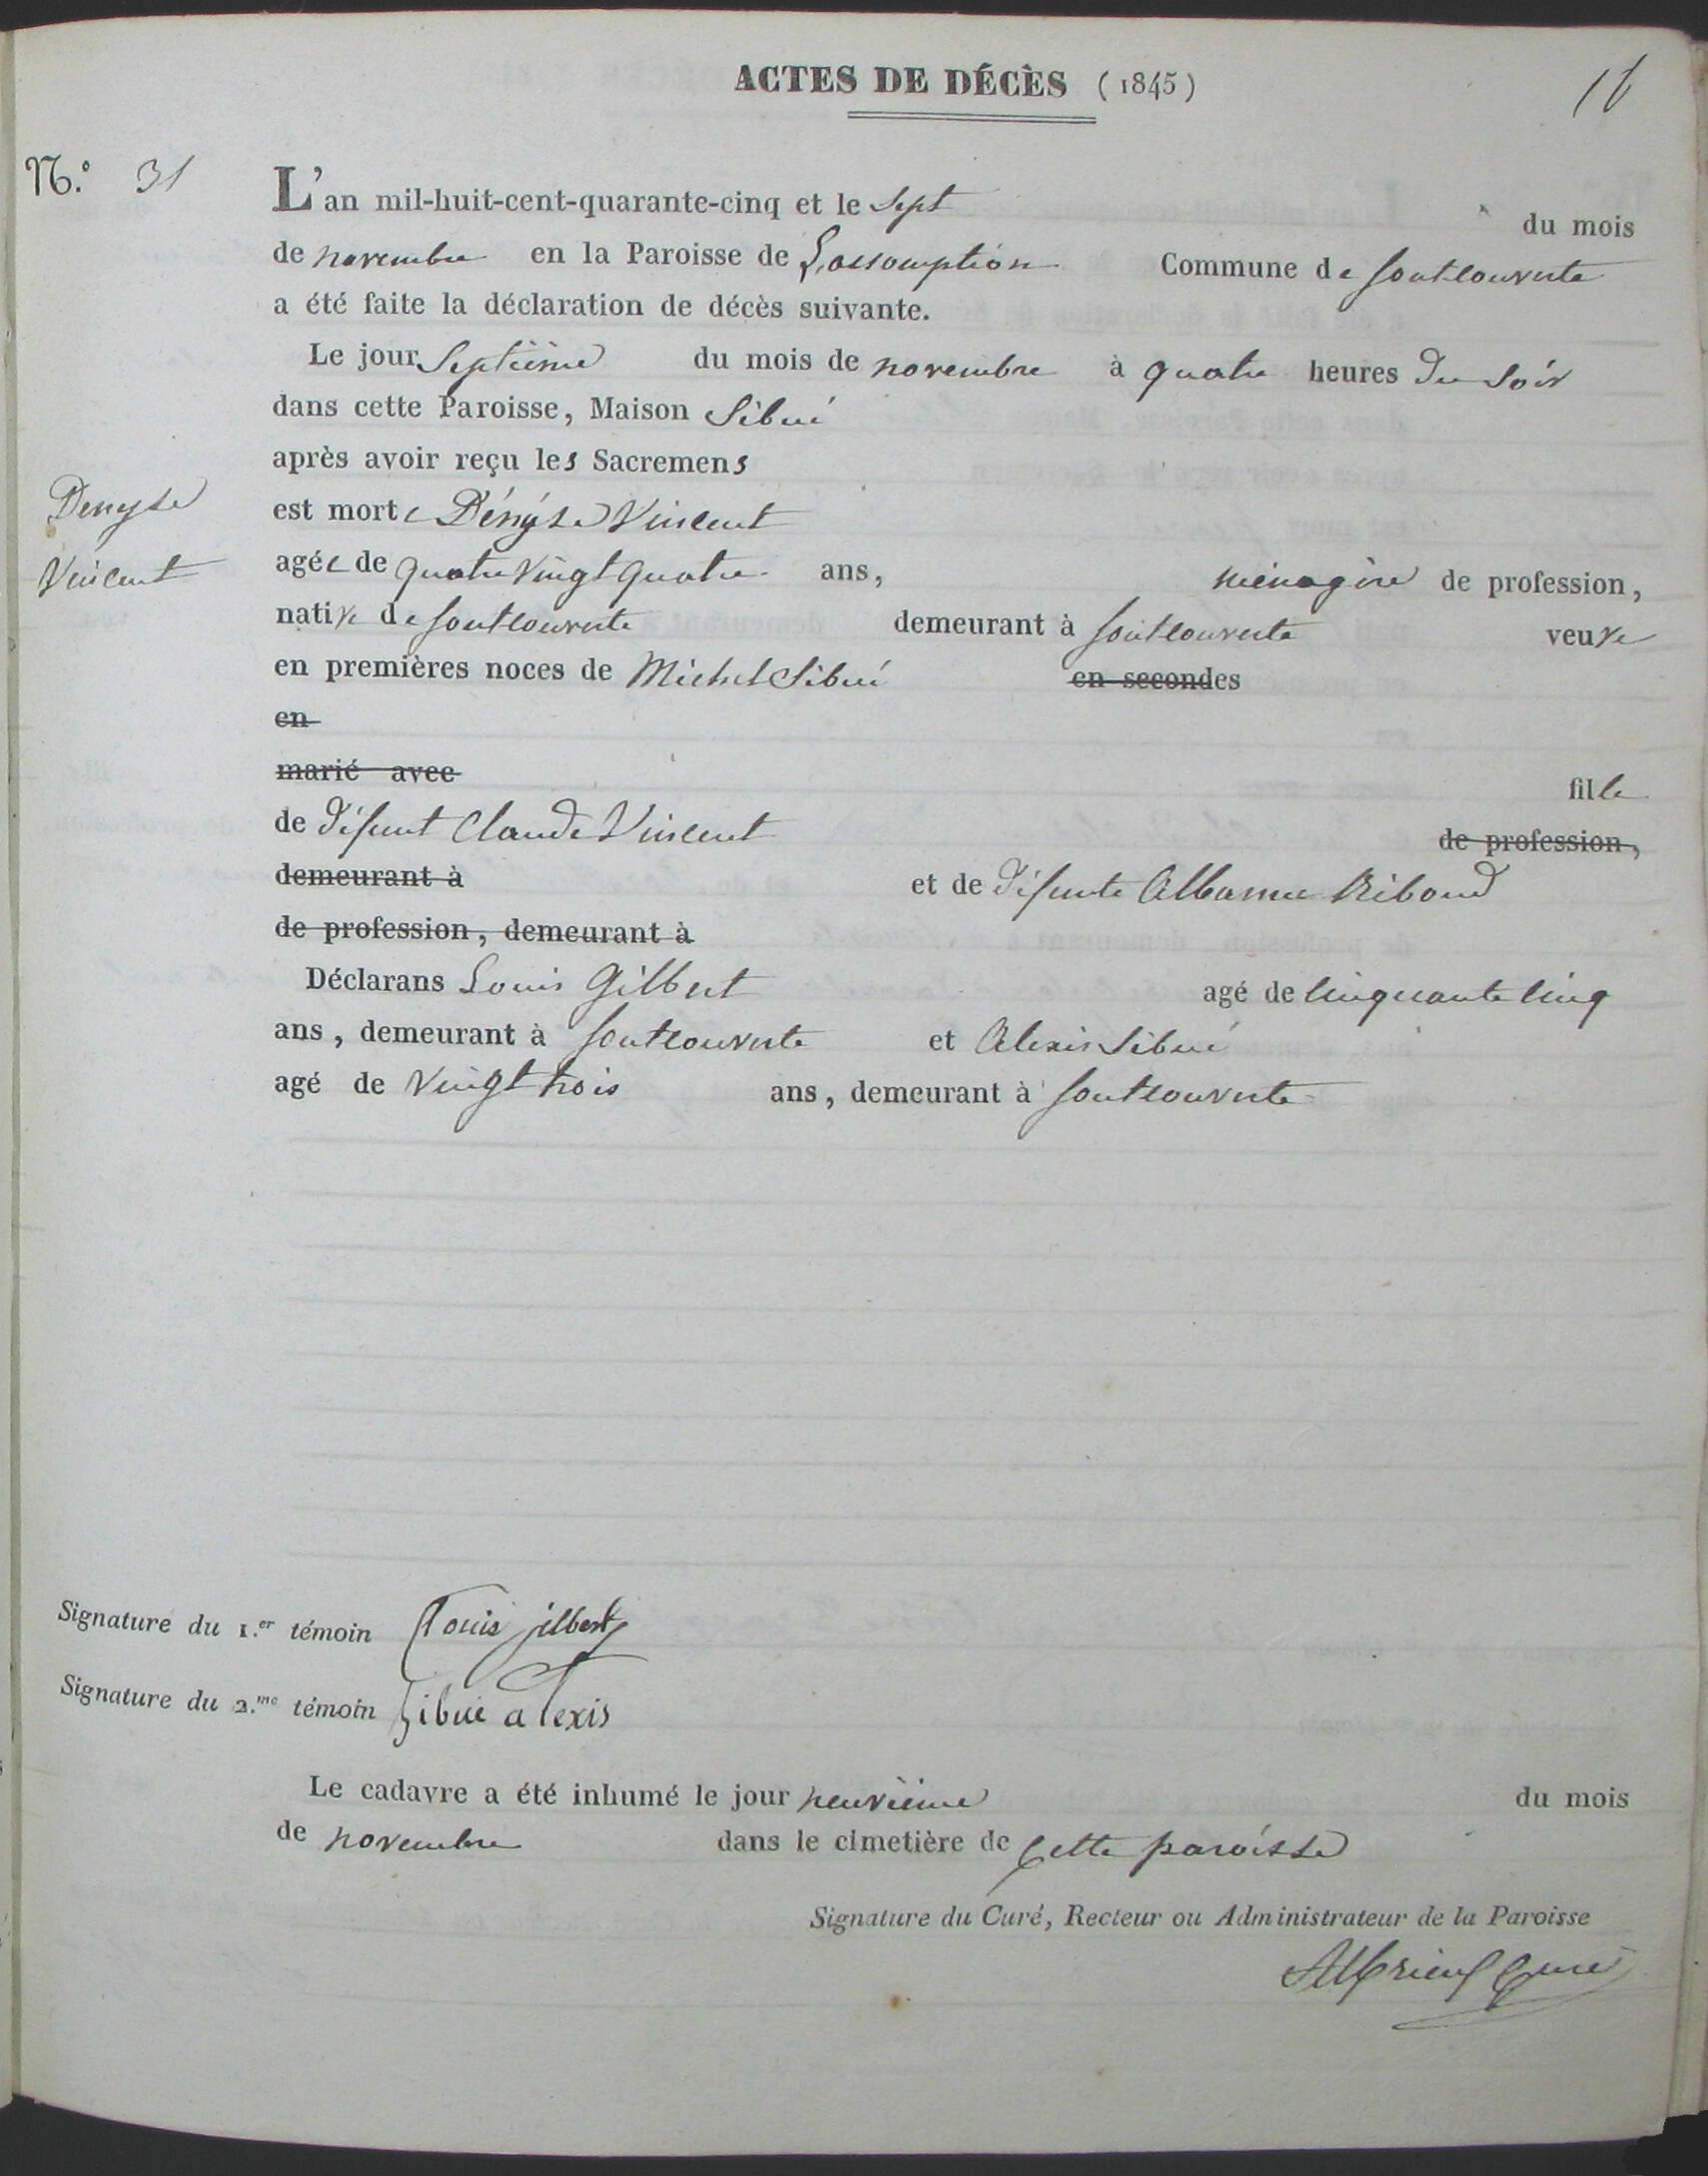 ACTES DE DÉCÈS (1845)
16
N.º 31
L'an mil-huit-cent-quarante-cinq et le sept du mois
de novembre en la Paroisse de L'assomption Commune de fontcouverte
a été faite la déclaration de décès suivante.
Le jour septième du mois de novembre à quatre heures du soir
dans cette Paroisse, Maison Sibué
après avoir reçu les Sacremens
Denyse
Vincent
est morte Dényse Vincent
agée de quatre vingt quatre ans, ménagère de profession,
native de fontcouverte demeurant à fontcouverte veuve
en premières noces de Michel Sibué en secondes
en
marié avec fille
de défunt Claude Vincent de profession,
demeurant à et de défunte Albanne Riboud
de profession, demeurant à
Déclarans Louis Gilbert agé de cinquante cinq
ans, demeurant à fontcouverte et Alexis Sibué
agé de vingt trois ans, demeurant à fontcouverte
Signature du 1.er témoin Louis jilbert
Signature du 2.me témoin Sibue alexis
Le cadavre a été inhumé le jour neuvième du mois
de novembre dans le cimetière de cette paroisse
Signature du Curé, Recteur ou Administrateur de la Paroisse
Curé